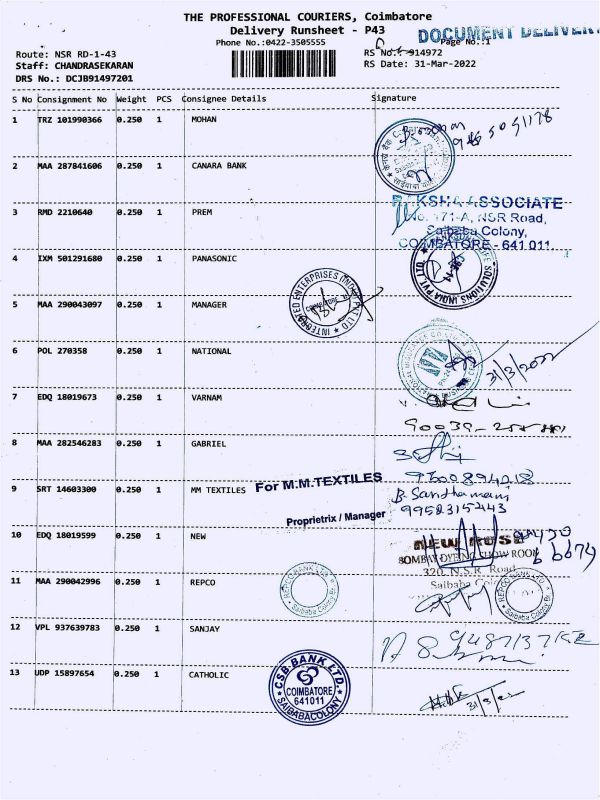 THE PROFESSIONAL COURIERS, Coimbatore
Delivery Runsheet - P43
DOCUMENT DELIVERY
Phone No.:0422-3505555
Page No.:1
Route: NSR RD-1-43
RS No.: 914972
Staff: CHANDRASEKARAN
RS Date: 31-Mar-2022
DRS No.: DCJB91497201
S No Consignment No Weight PCS Consignee Details Signature
1 TRZ 101990366 0.250 1 MOHAN
2 MAA 287841606 0.250 1 CANARA BANK
RAKSHA ASSOCIATE
3 RMD 2210640 0.250 1 PREM
No. 171-A, NSR Road,
Saibaba Colony,
COIMBATORE - 641 011.
4 IXM 501291680 0.250 1 PANASONIC
SOLUTIONS INDIA PVT LTD
INTEGRATED ENTERPRISES (INDIA) PVT LTD
COIMBATORE
5 MAA 290043097 0.250 1 MANAGER
6 POL 270358 0.250 1 NATIONAL
31/3/2022
7 EDQ 18019673 0.250 1 VARNAM
8 MAA 282546283 0.250 1 GABRIEL
9 SRT 14603300 0.250 1 MM TEXTILES
For M.M.TEXTILES
B. Santhamani
9952315443
Proprietrix / Manager
10 EDQ 18019599 0.250 1 NEW
NEW ROSE
BOMBAY DYEING SHOW ROOM
320, N.S.R. Road
Saibaba Colony
11 MAA 290042996 0.250 1 REPCO
REPCO BANK LTD
Saibaba Colony Br
REPCO BANK LTD
Saibaba Colony Br
12 VPL 937639783 0.250 1 SANJAY
13 UDP 15897654 0.250 1 CATHOLIC
CSB BANK LTD.
COIMBATORE
641011
SAIBABACOLONY